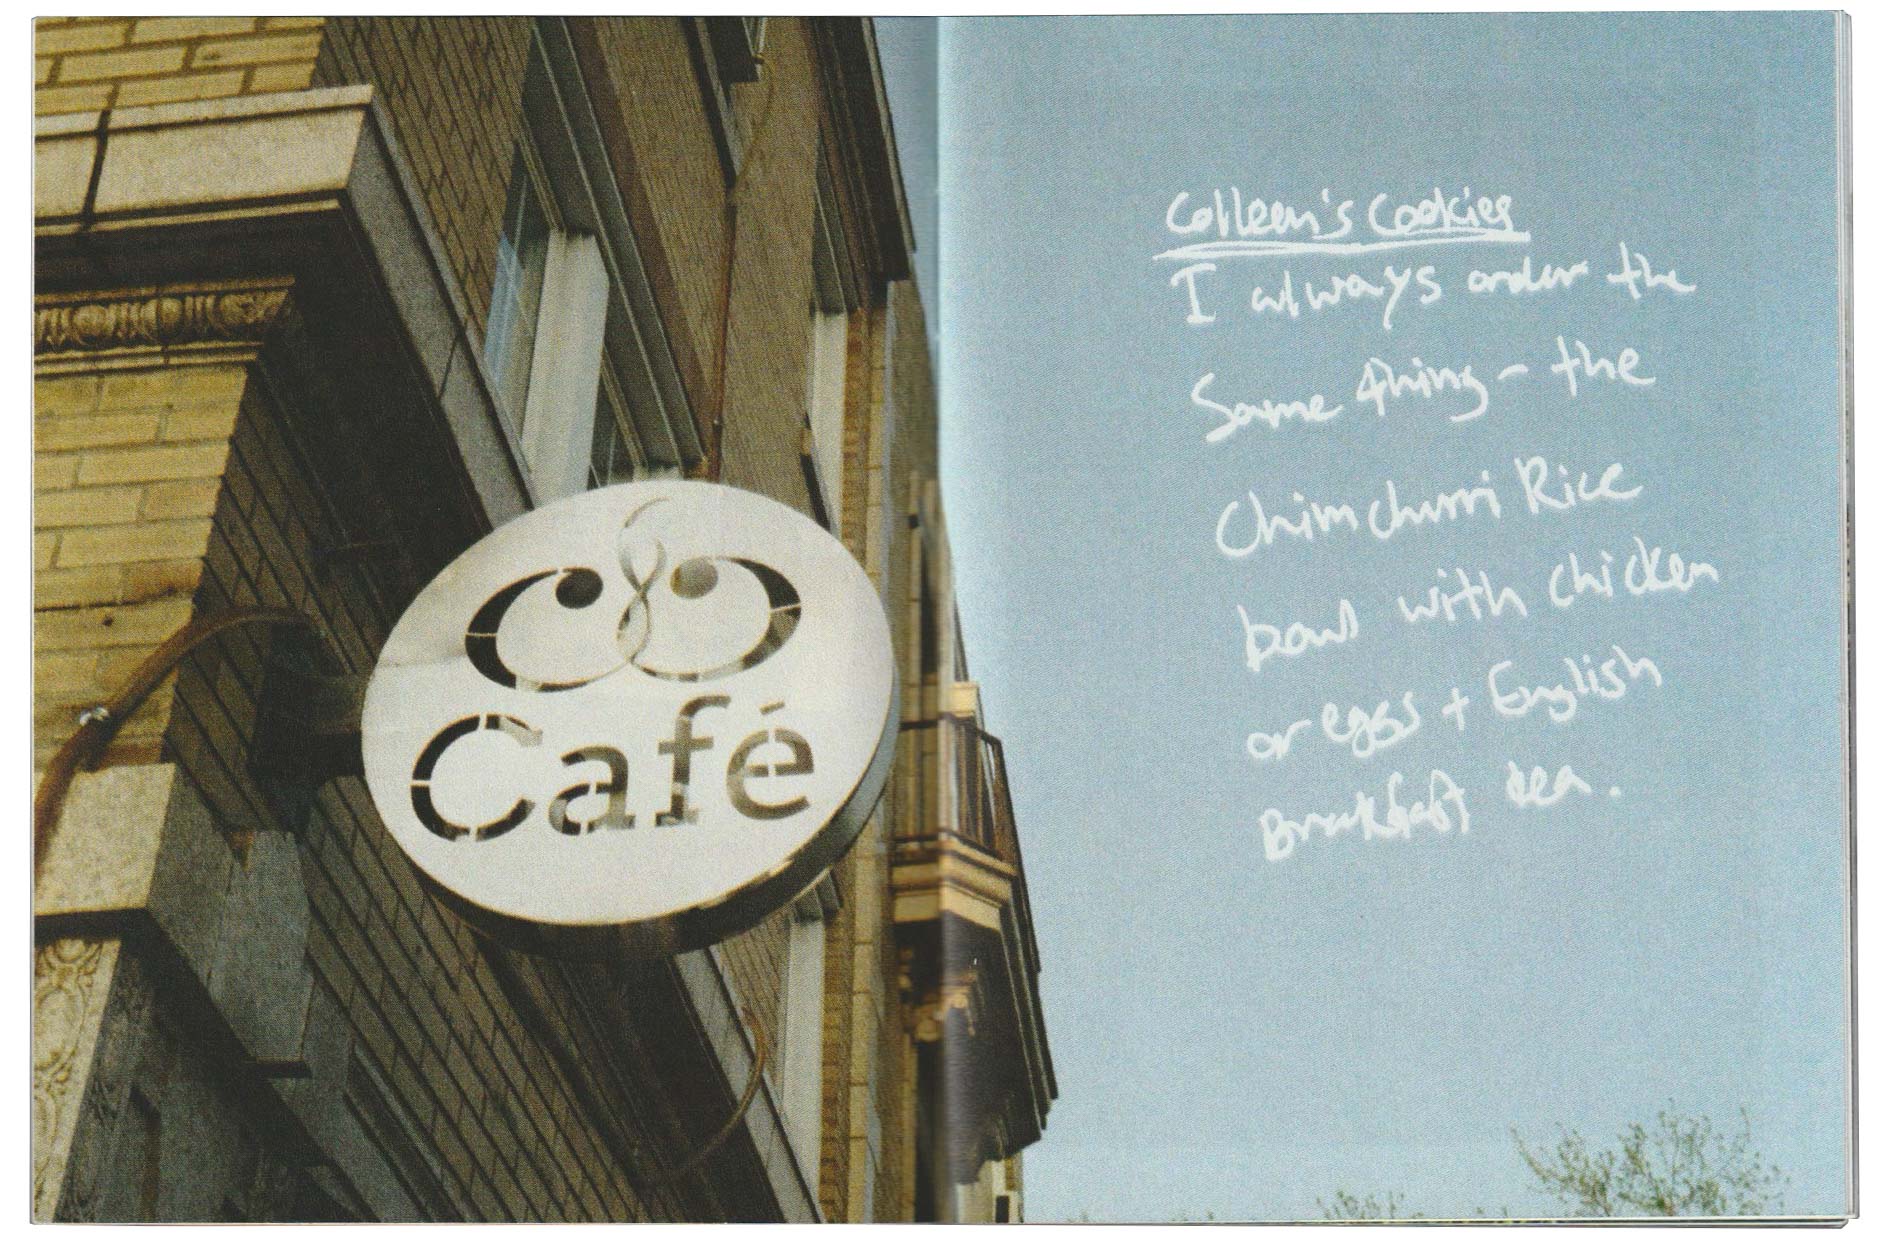 Café
Colleen's Cookies
I always order the
Same thing - the
Chimichurri Rice
bowl with chicken
or eggs + English
Breakfast tea.